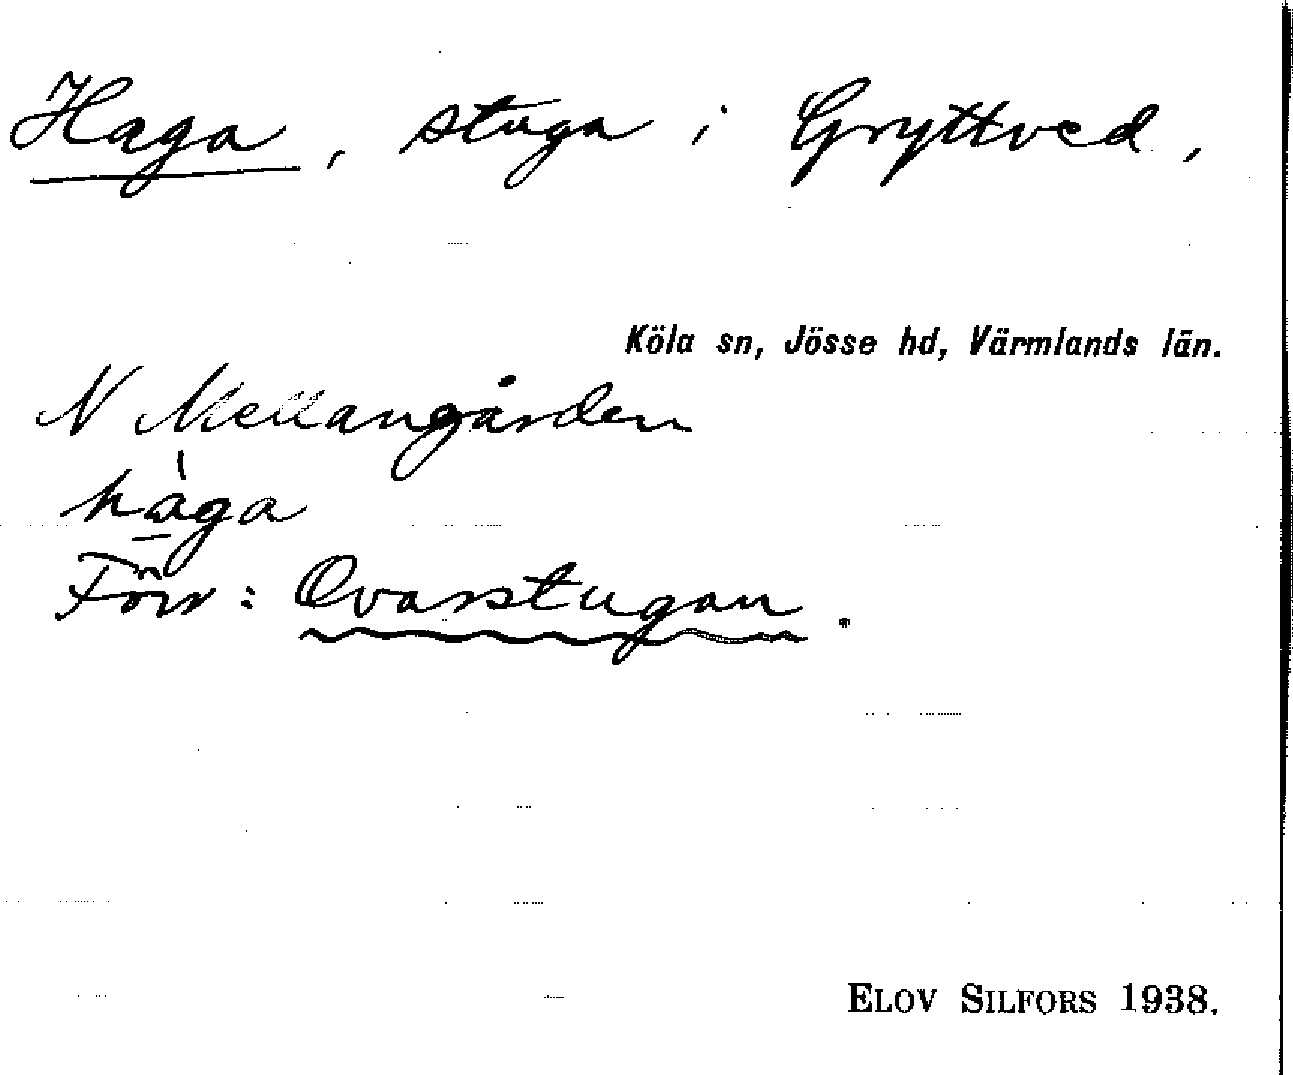 Haga, stuga i Gryttved,
Köla sn, Jösse hd, Värmlands län.
N Mellangården
hàga
Förr: Ovarstugan.
ELOV SILFORS 1938.